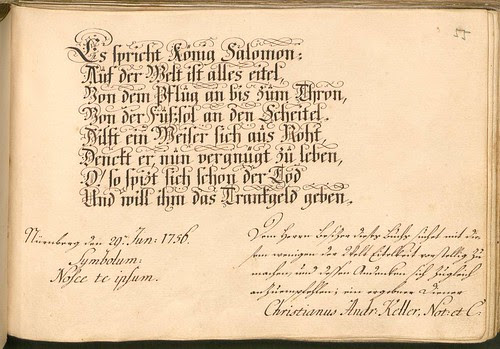 Es spricht König Salomon:
Auf der Welt ist alles eitel,
Von dem Pflüg an bis züm Thron,
Von der Füßsol an den Scheitel.
Hilft ein Weiser sich aus Noht,
Denckt er, nün vergnügt zü leben,
O! so spizt sich schon der Tod
Und will ihm das Tranckgeld geben.
Nürnberg den 29. Jun: 1756.
Symbolum:
Nosce te ipsum.
Dem Herrn Besizer dieses Buchs suchet mit die-
sem wenigen der Welt Eitelkeit vorstellig zu
machen, und dessen Andencken sich zugleich
anzuempfehlen; ein ergebner Diener
Christianus Andr. Keller, Not: et C.